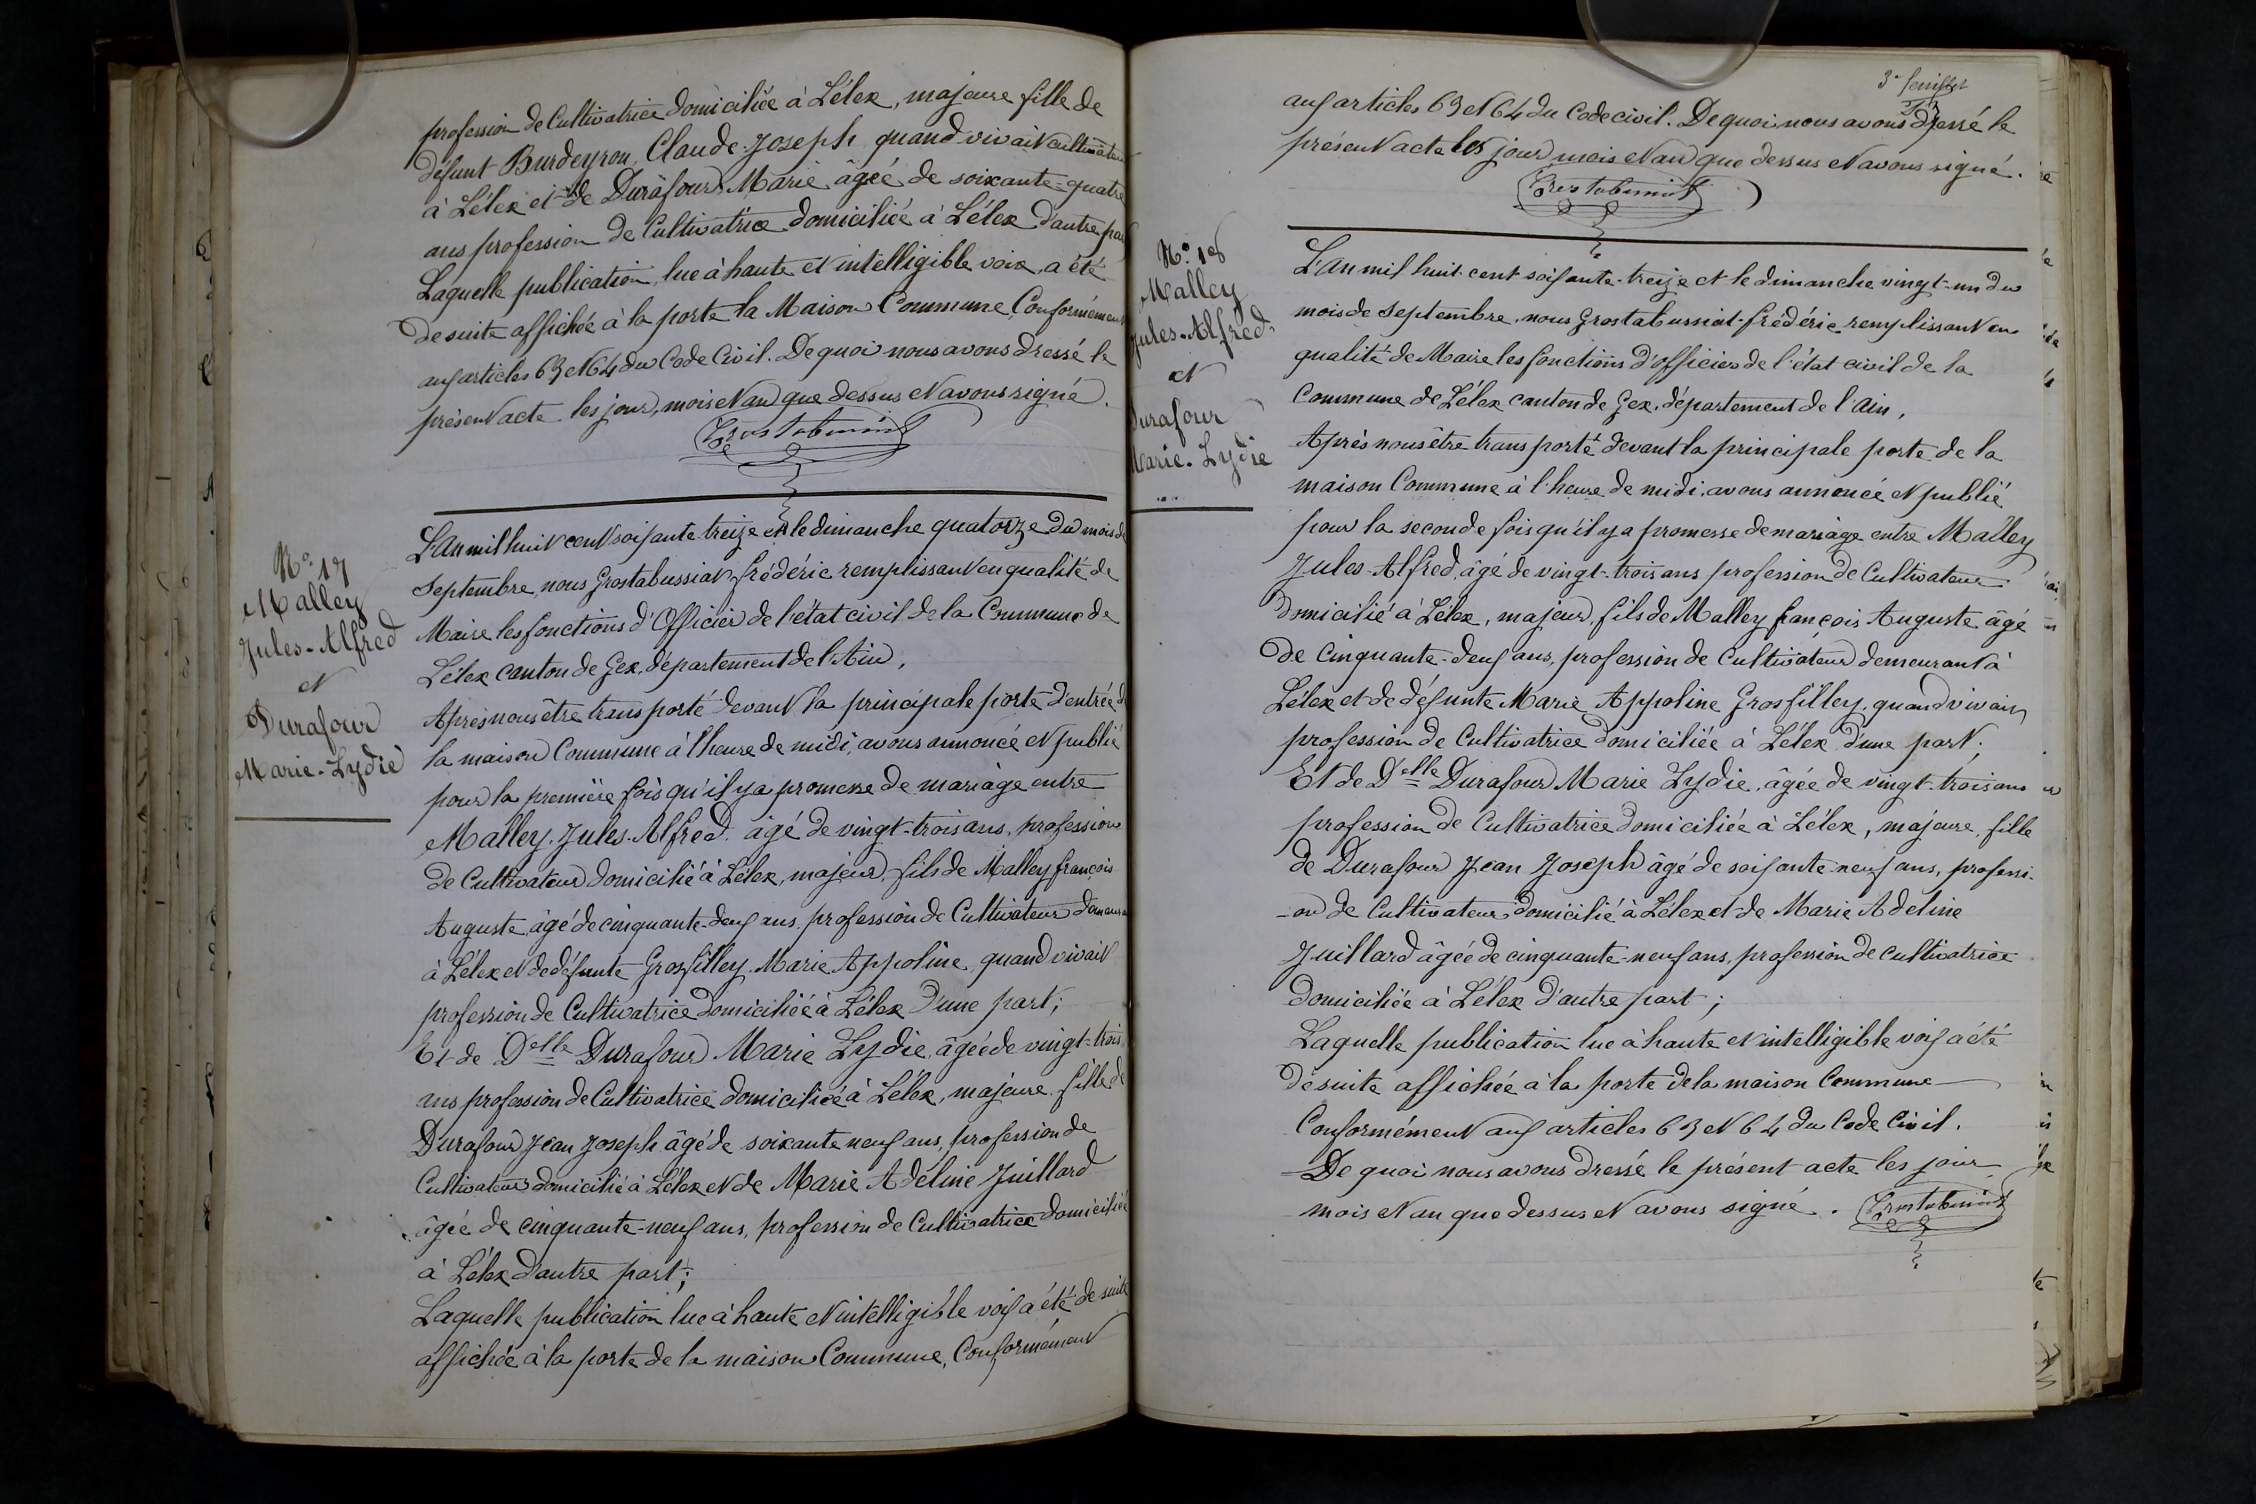 profession de Cultivatrice domiciliée à Lélex, majeure fille de
défunt Burdeyron, Claude-Joseph quand vivait cultivateur
à Lélex et de Durafour, Marie âgée de soixante-quatre
ans profession de Cultivatrice domiciliée à Lélex d'autre par
Laquelle publication, lue à haute et intelligible voix, a été
de suite affichée à la porte la Maison Commune, Conformément
aux articles 63 et 64 du Code Civil. De quoi nous avons dressé le
présent acte les jour, mois et an que dessus et avons signé.
Grostabussiat
N° 17
Malley
Jules-Alfred
et
Durafour
Marie-Lydie
L'An mil huit cent soixante treize et le dimanche quatorze du mois de
Septembre, nous Grostabussiat, frédéric remplissant en qualité de
Maire les fonctions d'Officier de l'état civil de la Commune de
Lélex canton de Gex, département de l'Ain,
Après nous être transporté devant la principale porte d'entrée d
la maison Commune à l'heure de midi, avons annoncé et publié
pour la première fois qu'il y a promesse de mariage entre
Malley, Jules-Alfred. âgé de vingt-trois ans, profession
de Cultivateur domicilié à Lélex, majeur, fils de Malley françois
Auguste, âgé de cinquante-deux ans, profession de Cultivateur demeurant
à Lélex et de défunte Grosfilley, Marie Appoline, quand vivait
profession de Cultivatrice domiciliée à Lélex d'une part;
Et de Delle Durafour Marie Lydie, âgée de vingt-trois
ans profession de Cultivatrice domiciliée à Lélex, majeure, fille de
Durafour Jean Joseph âgé de soixante neuf ans, profession de
Cultivateur domicilié à Lélex et de Marie Adeline Juillard
âgée de cinquante-neuf ans, profession de Cultivatrice domiciliée
à Lélex d'autre part;
Laquelle publication lue à haute et intelligible voix a été de suite
affichée à la porte de la maison Commune, Conformément
3e feuillet
aux articles 63 et 64 du Code civil. De quoi nous avons dressé le
présent acte les jour mois et an que dessus et avons signé.
Grostabussiat
N° 18
Malley
Jules-Alfred
et
Durafour
Marie-Lydie
L'An mil huit cent soixante-treize et le dimanche vingt-un du
mois de septembre, nous Grostabussiat frédéric remplissant en
qualité de Maire les fonctions d'officier de l'état civil de la
Commune de Lélex canton de Gex, département de l'Ain,
Après nous être transporté devant la principale porte de la
maison Commune à l'heure de midi, avons annoncé et publié
pour la seconde fois qu'il y a promesse de mariage entre Malley
Jules-Alfred, âgé de vingt-trois ans profession de Cultivateur
domicilié à Lélex, majeur, fils de Malley françois Auguste âgé
de cinquante-deux ans, profession de Cultivateur demeurant à
Lélex et de défunte Marie Appoline Grosfilley, quand vivait
profession de Cultivatrice domiciliée à Lélex d'une part;
Et de Delle Durafour Marie Lydie, âgée de vingt-trois ans
profession de Cultivatrice domiciliée à Lélex, majeure, fille
de Durafour Jean Joseph âgé de soixante-neuf ans, professi-
-on de Cultivateur domicilié à Lélex et de Marie Adeline
Juillard âgée de cinquante-neuf ans, profession de cultivatrice
domiciliée à Lélex d'autre part;
Laquelle publication lue à haute et intelligible voix a été
de suite affichée à la porte de la maison Commune
Conformément aux articles 63 et 64 du Code Civil.
De quoi nous avons dressé le présent acte les jour
mois et an que dessus et avons signé. Grostabussiat